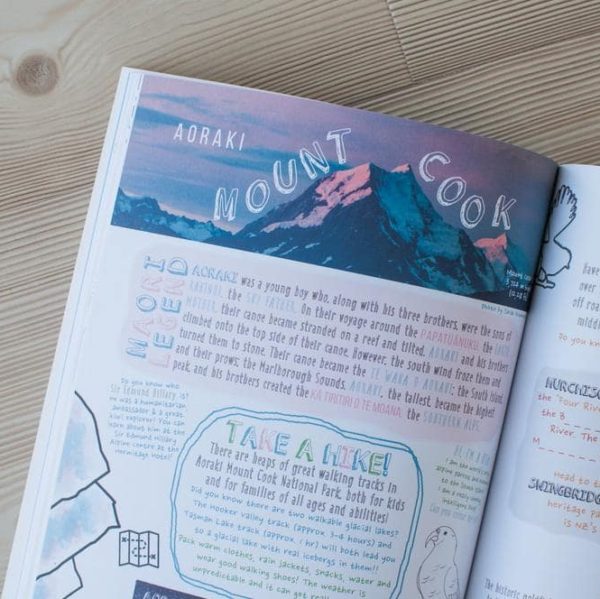 AORAKI
MOUNT COOK
MAORI
LEGEND
AORAKI was a young boy who, along with his three brothers, were the sons of
RAKINUI, the SKY FATHER. On their voyage around the PAPATUANUKU, the EARTH
MOTHER, their canoe became stranded on a reef and tilted. AORAKI and his brothers
climbed onto the top side of their canoe. However, the south wind froze them and
turned them to stone. Their canoe became the TE WAKA O AORAKI; the South Island,
and their prows; the Marlborough Sounds. AORAKI, the tallest, became the highest
peak, and his brothers created the KA TIRITIRI O TE MOANA, the SOUTHERN ALPS.
Do you know who
Sir Edmund Hillary is?
He was a humanitarian,
ambassador & a great
kiwi explorer! You can
learn about him at the
Sir Edmund Hillary
Alpine centre at the
Hermitage Hotel!
TAKE A HIKE!
There are heaps of great walking tracks in
Aoraki Mount Cook National Park, both for kids
and for families of all ages and abilities!
Did you know there are two walkable glacial lakes?
The Hooker valley track (approx 3-4 hours) and
Tasman Lake track (approx 1 hr) will both lead you
to a glacial lake with real icebergs in them!!
Pack warm clothes, rain jackets, snacks, water and
wear good walking shoes! The weather is
unpredictable and it can get
I am the world's only
alpine parrot
have
over
off roa
middl
Do you kno
MURCHISO
the "Four River
the B
River. The
M
Head to t
SWINGBRIDG
heritage pa
is NZ's
The historic